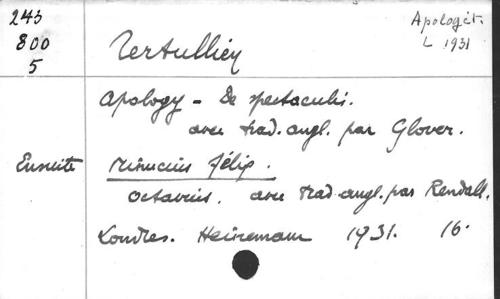 243
800
5
Apologét.
L 1931
Tertullien
Apology - De spectaculis.
avec trad. angl. par Glover.
Ensuite Minucius Félix.
Octavius. avec trad. angl. par Rendall.
Londres. Heinemann 1931. 16.